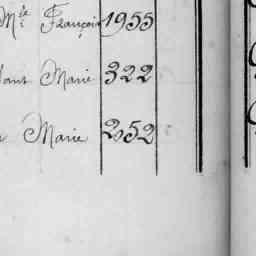 Mle François 1955
Marie 322
Marie 252